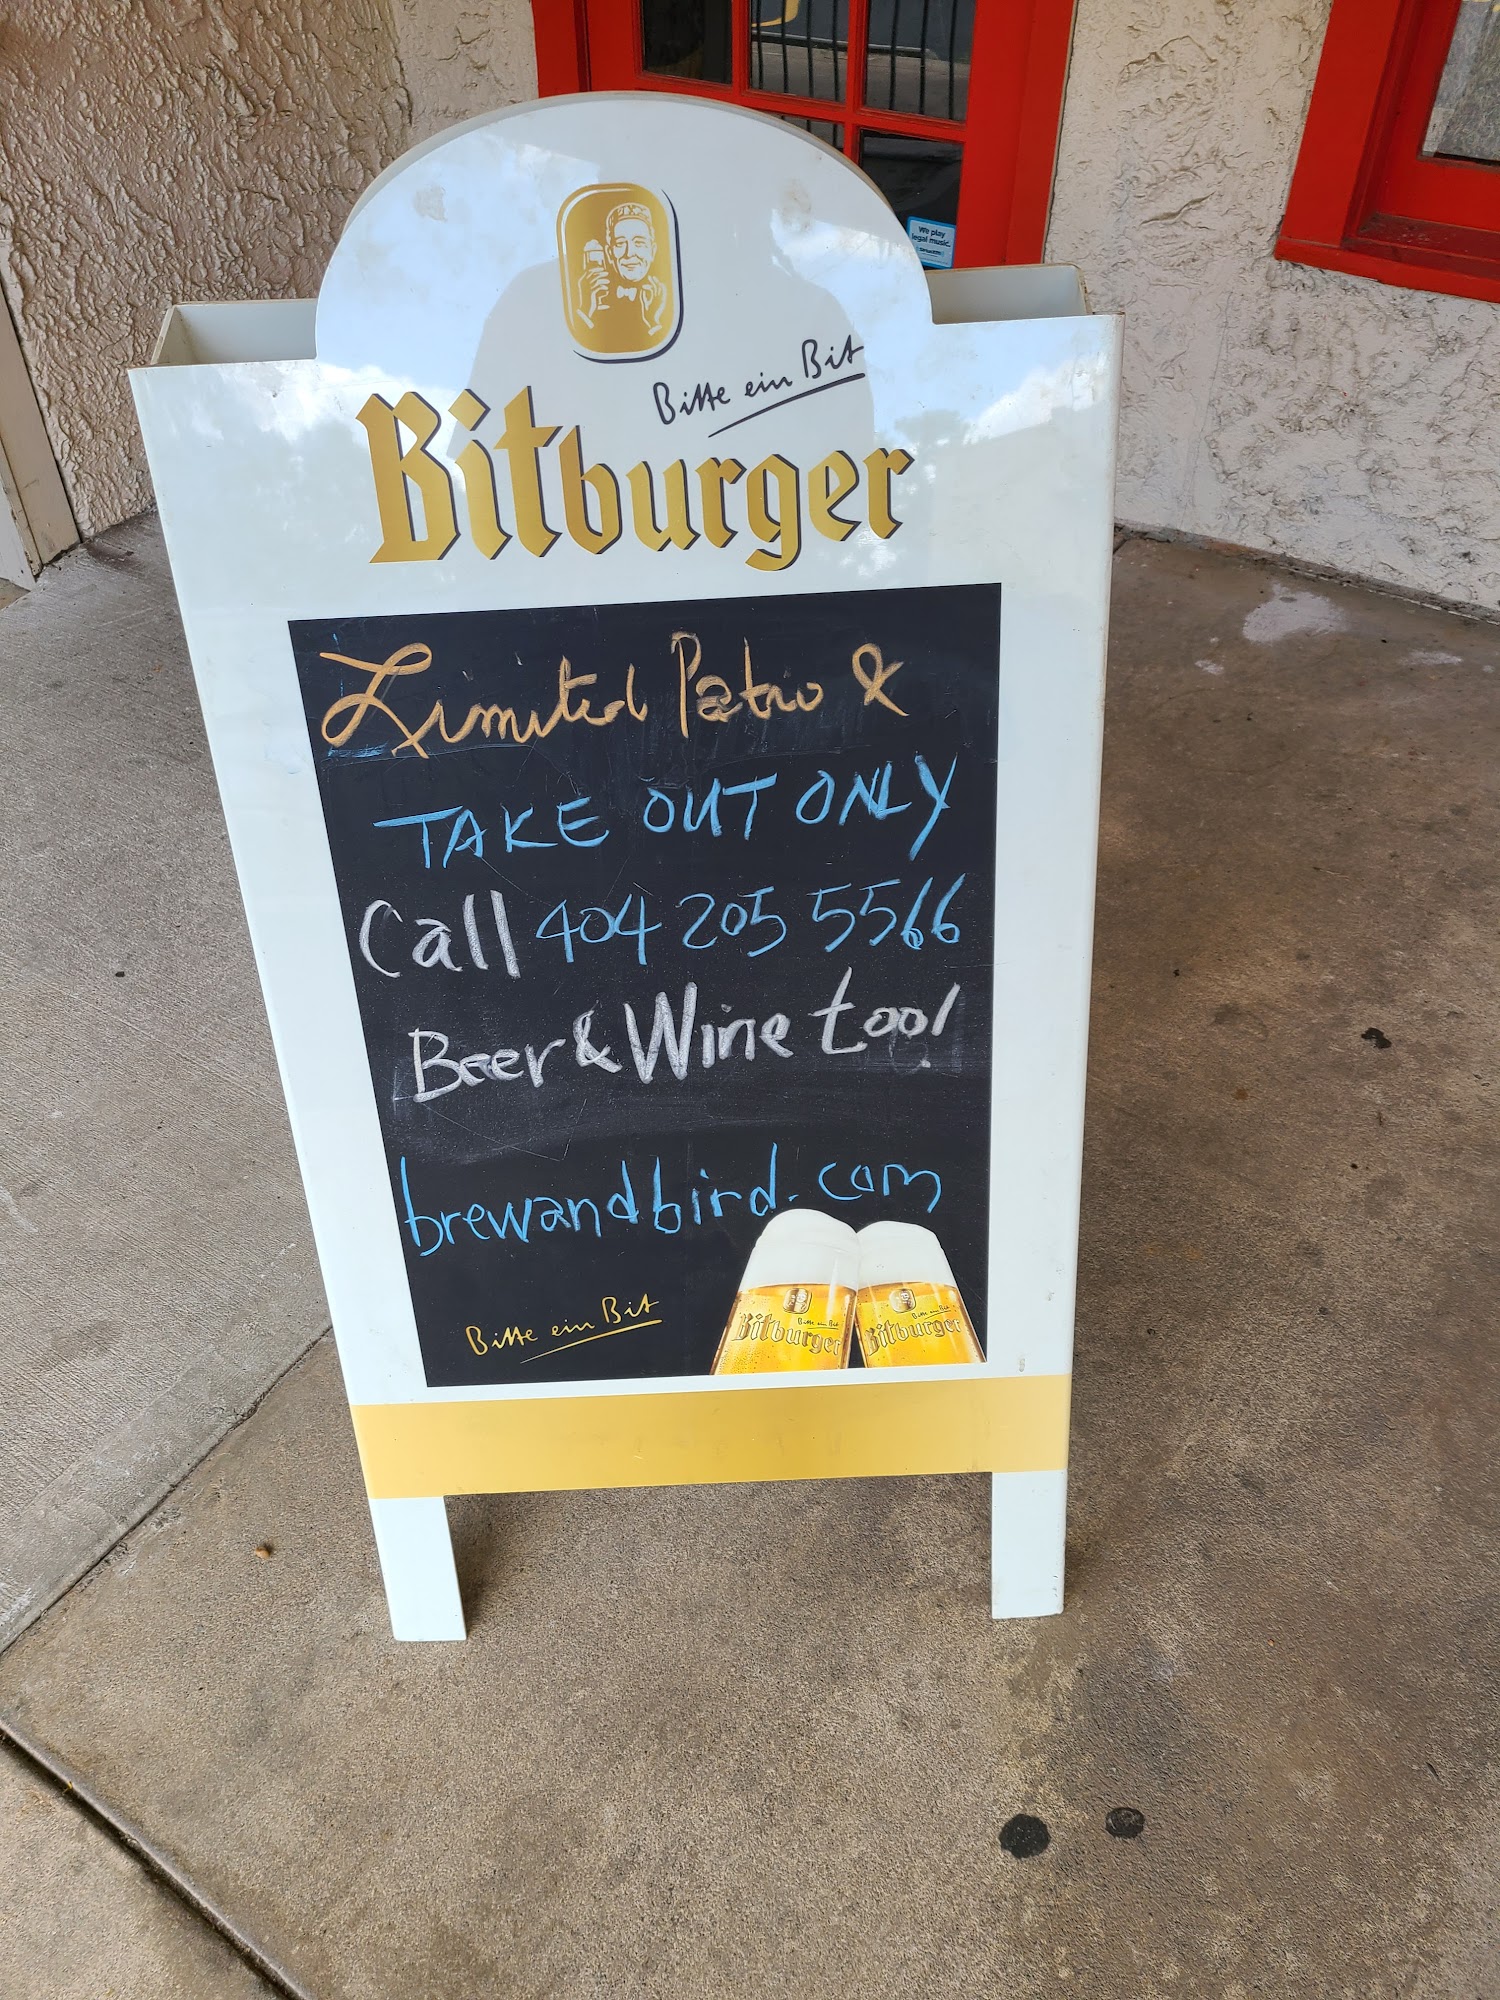 Bitte ein Bit
Bitburger
Limited Patio &
TAKE OUT ONLY
Call 404 205 5566
Beer & Wine too!
brewandbird.com
Bitte ein Bit
Bitte ein Bit
Bitburger
Bitte ein Bit
Bitburger
We play
legal music.